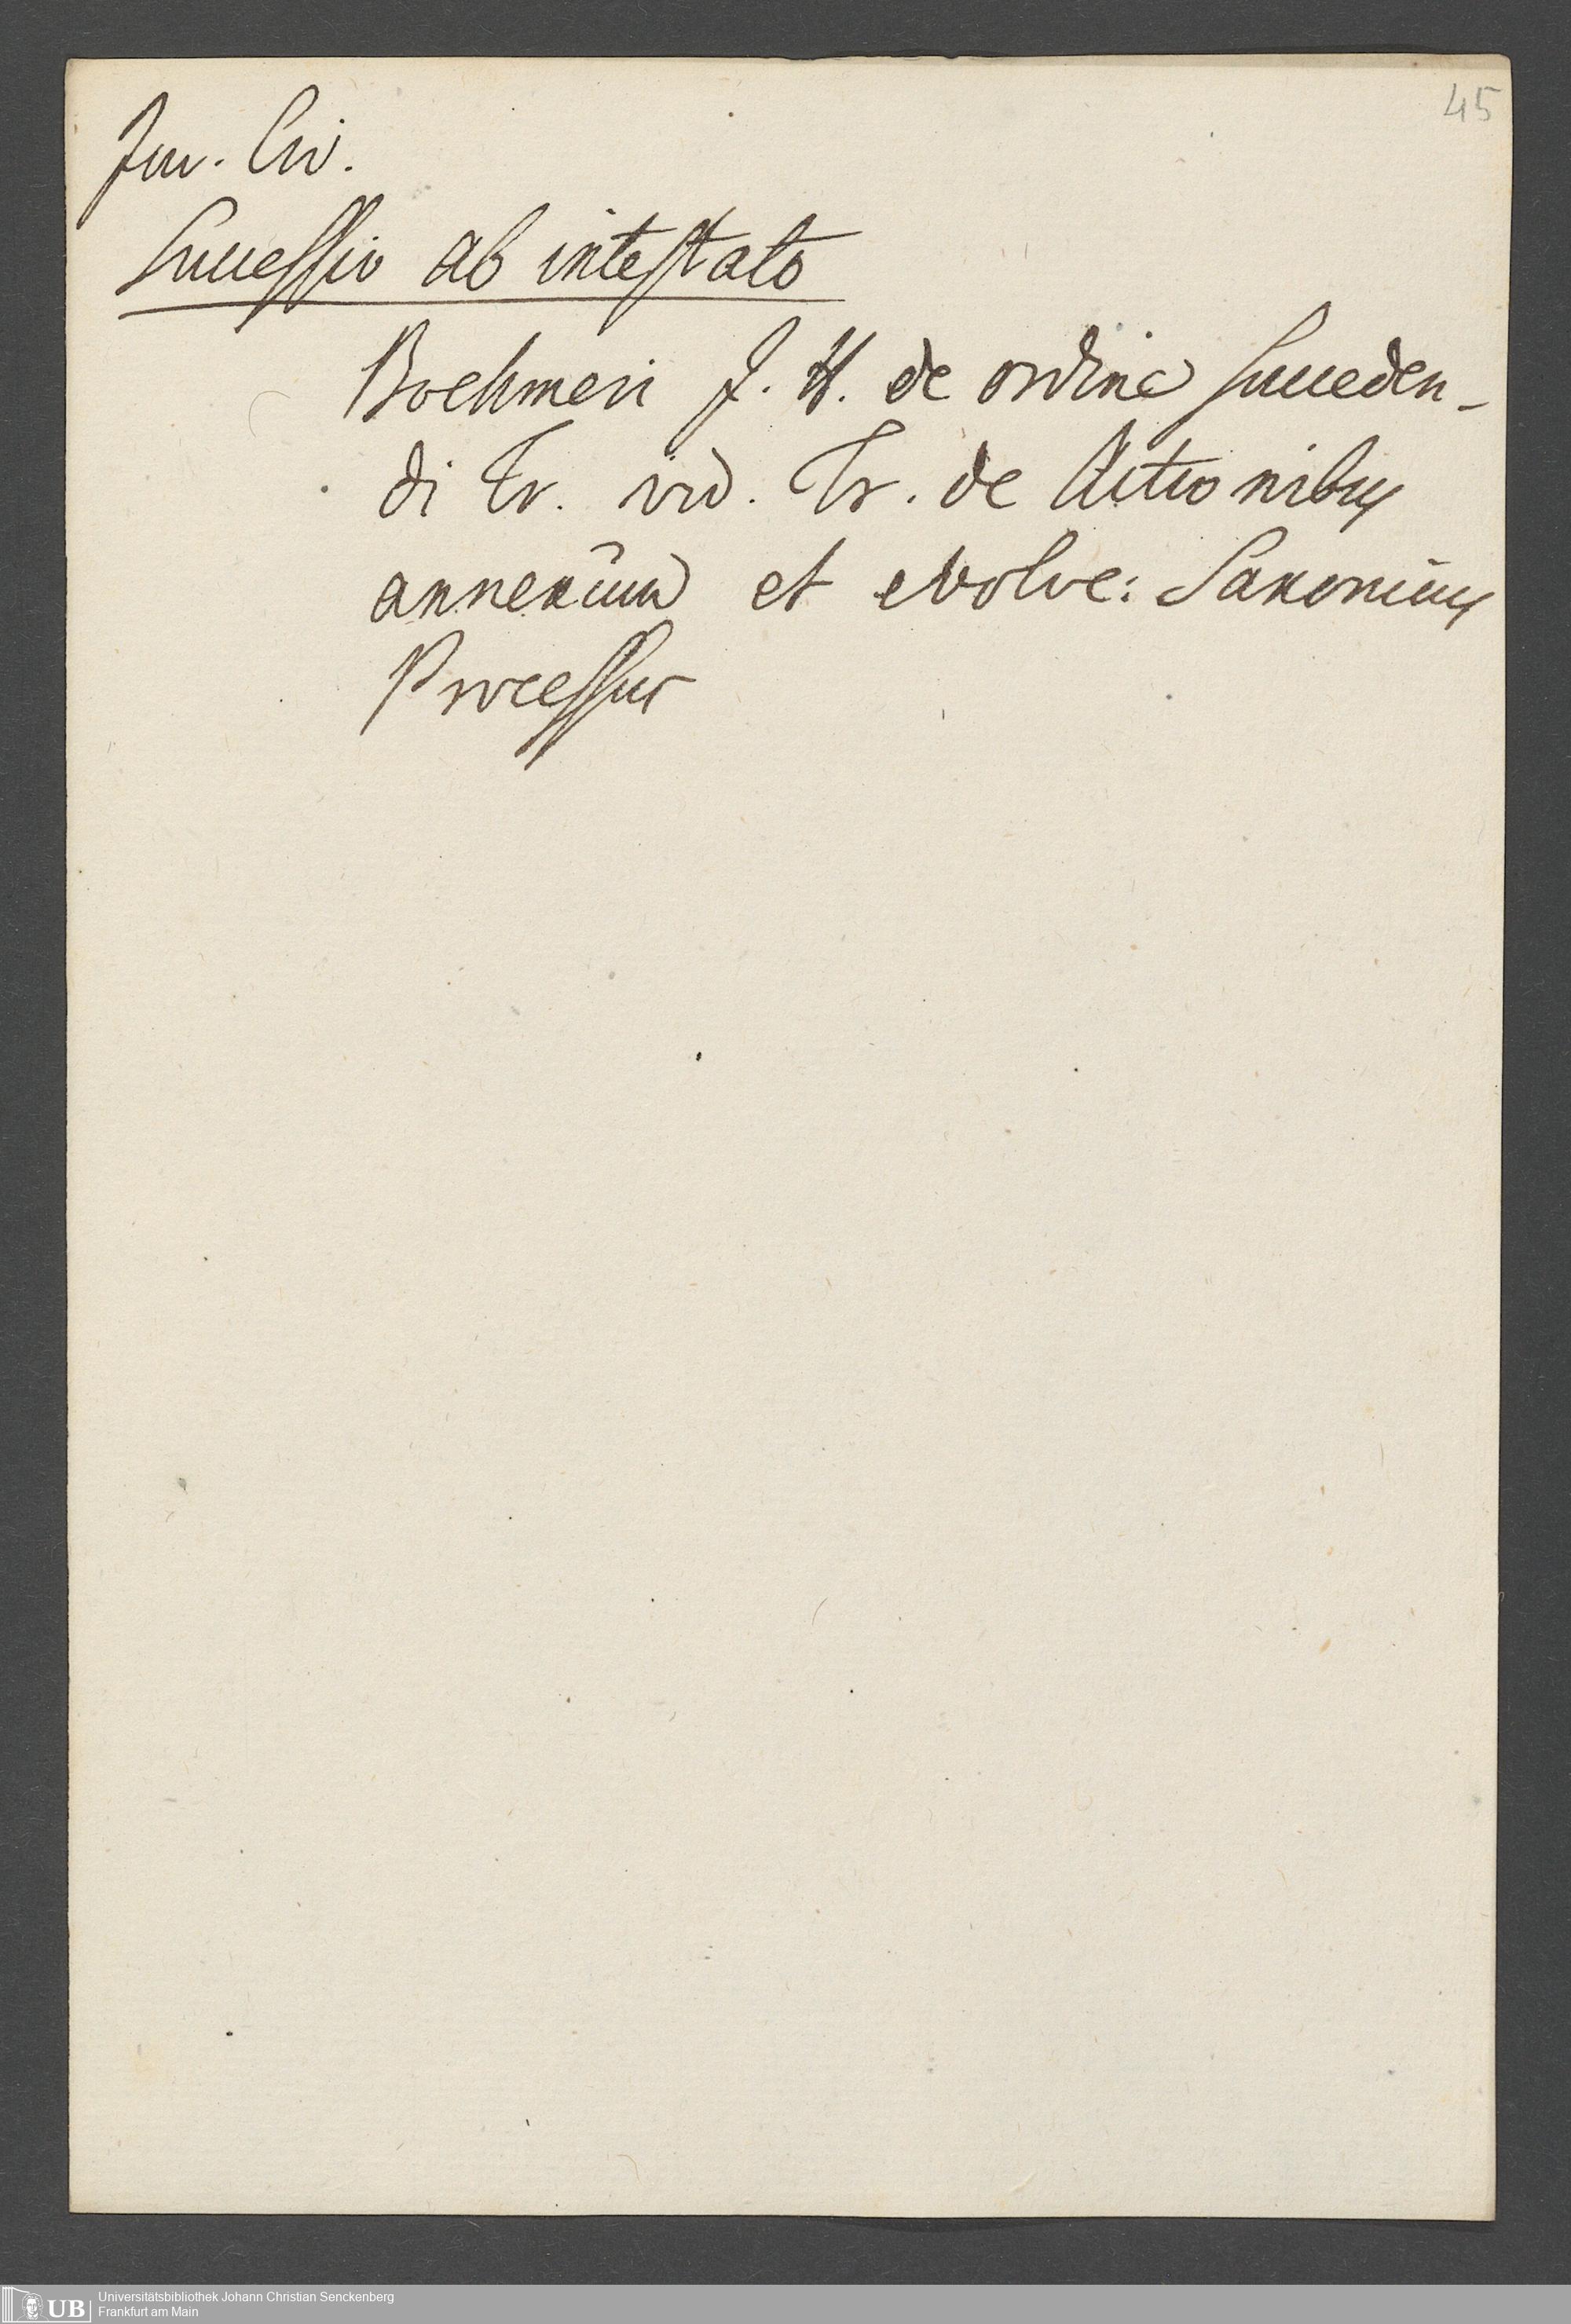 45
Jur. Civ.
Successio ab intestato
Boehmeri J. H. de ordine succeden-
di Tr. vid. Tr. de Actionibus
annexum et evolve: Saxonicus
Processus
Universitätsbibliothek Johann Christian Senckenberg
Frankfurt am Main
UB